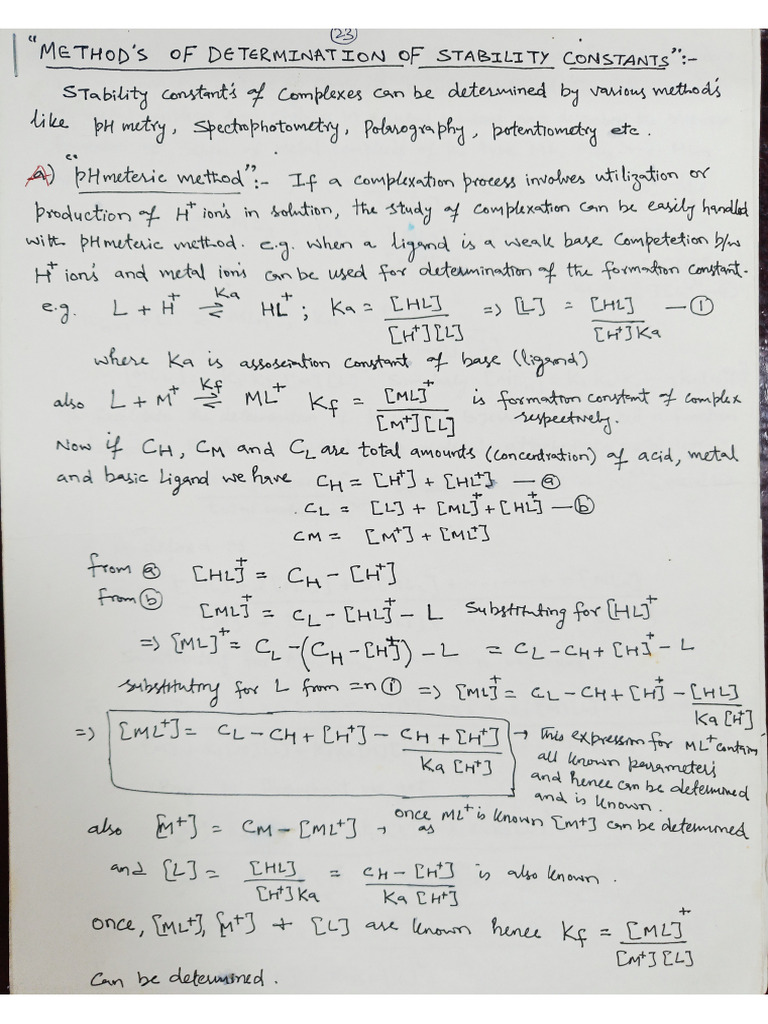 (23)
"METHOD'S OF DETERMINATION OF STABILITY CONSTANTS":-
Stability constant's of complexes can be determined by various method's
like pH metry, Spectrophotometry, Polarography, potentiometry etc.
a) "pHmeteric method":- If a complexation process involves utilization or
production of H⁺ ion's in solution, the study of complexation can be easily handled
with pHmeteric method. e.g. when a ligand is a weak base Competetion b/w
H⁺ ion's and metal ion's can be used for determination of the formation constant.
e.g. L + H⁺ ⇌ (Ka) HL⁺ ; Ka = [HL]/[H⁺][L] => [L] = [HL]/[H⁺]Ka —①
where Ka is assosciation constant of base (ligand)
also L + M⁺ ⇌ (Kf) ML⁺ Kf = [ML]⁺/[M⁺][L] is formation constant of complex
respectively.
Now if CH, CM and CL are total amounts (concentration) of acid, metal
and basic Ligand we have CH = [H⁺] + [HL⁺] —ⓐ
CL = [L] + [ML]⁺ + [HL]⁺ —ⓑ
CM = [M⁺] + [ML⁺]
from ⓐ [HL]⁺ = CH - [H⁺]
from ⓑ [ML]⁺ = CL - [HL]⁺ - L Substituting for [HL]⁺
=> [ML]⁺ = CL - (CH - [H]⁺) - L = CL - CH + [H]⁺ - L
substituting for L from =n ① => [ML]⁺ = CL - CH + [H]⁺ - [HL]/Ka[H⁺]
=> [ML⁺] = CL - CH + [H⁺] - CH + [H⁺]/Ka[H⁺] → This expression for ML⁺ contain
all known parameter's
and hence can be determined
and is known.
also [M⁺] = CM - [ML⁺] , as once ML⁺ is known [M⁺] can be determined
and [L] = [HL]/[H⁺]Ka = CH - [H⁺]/Ka[H⁺] is also known.
once, [ML⁺], [M⁺] + [L] are known hence Kf = [ML]⁺/[M⁺][L]
Can be determined.